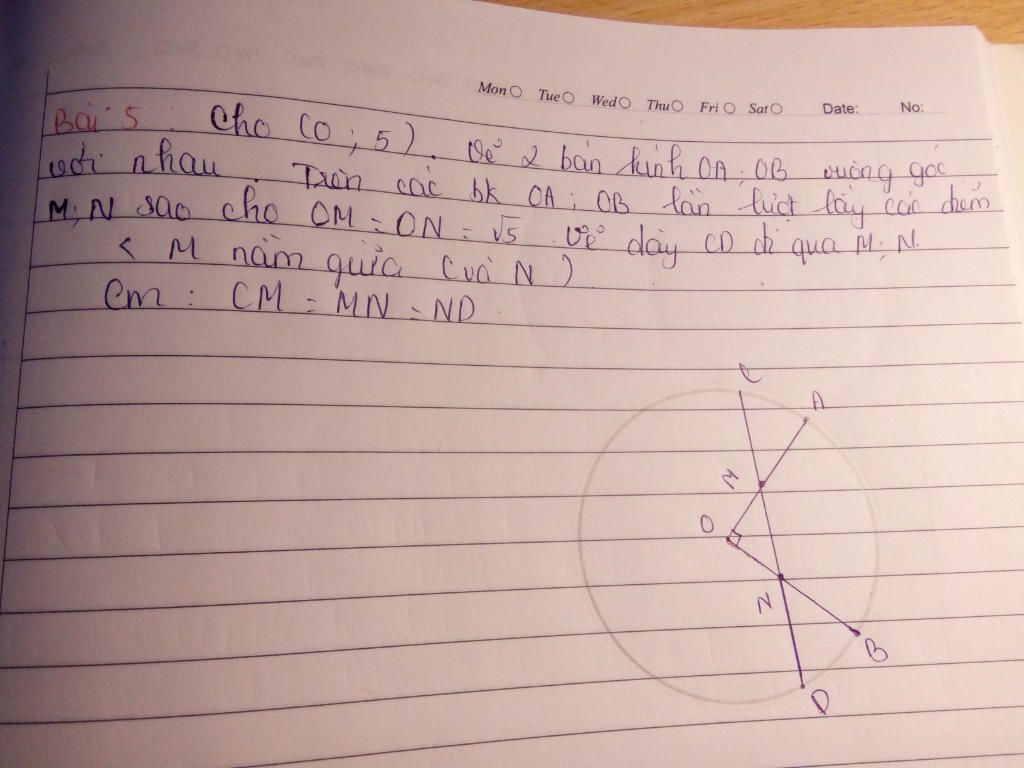 Mon Tue Wed Thu Fri Sat Date: No:
Bài 5 : Cho (O ; 5). Vẽ 2 bán kính OA ; OB vuông góc
với nhau. Trên các bk OA ; OB lần lượt lấy các điểm
M; N sao cho OM = ON = √5 Vẽ dây CD đi qua M; N.
< M nằm giữa C và N )
Cm : CM = MN = ND.
C
A
M
O
N
B
D